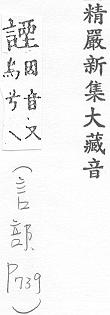 精嚴新集大藏音
諲
因音又
烏兮
(言部 P739)